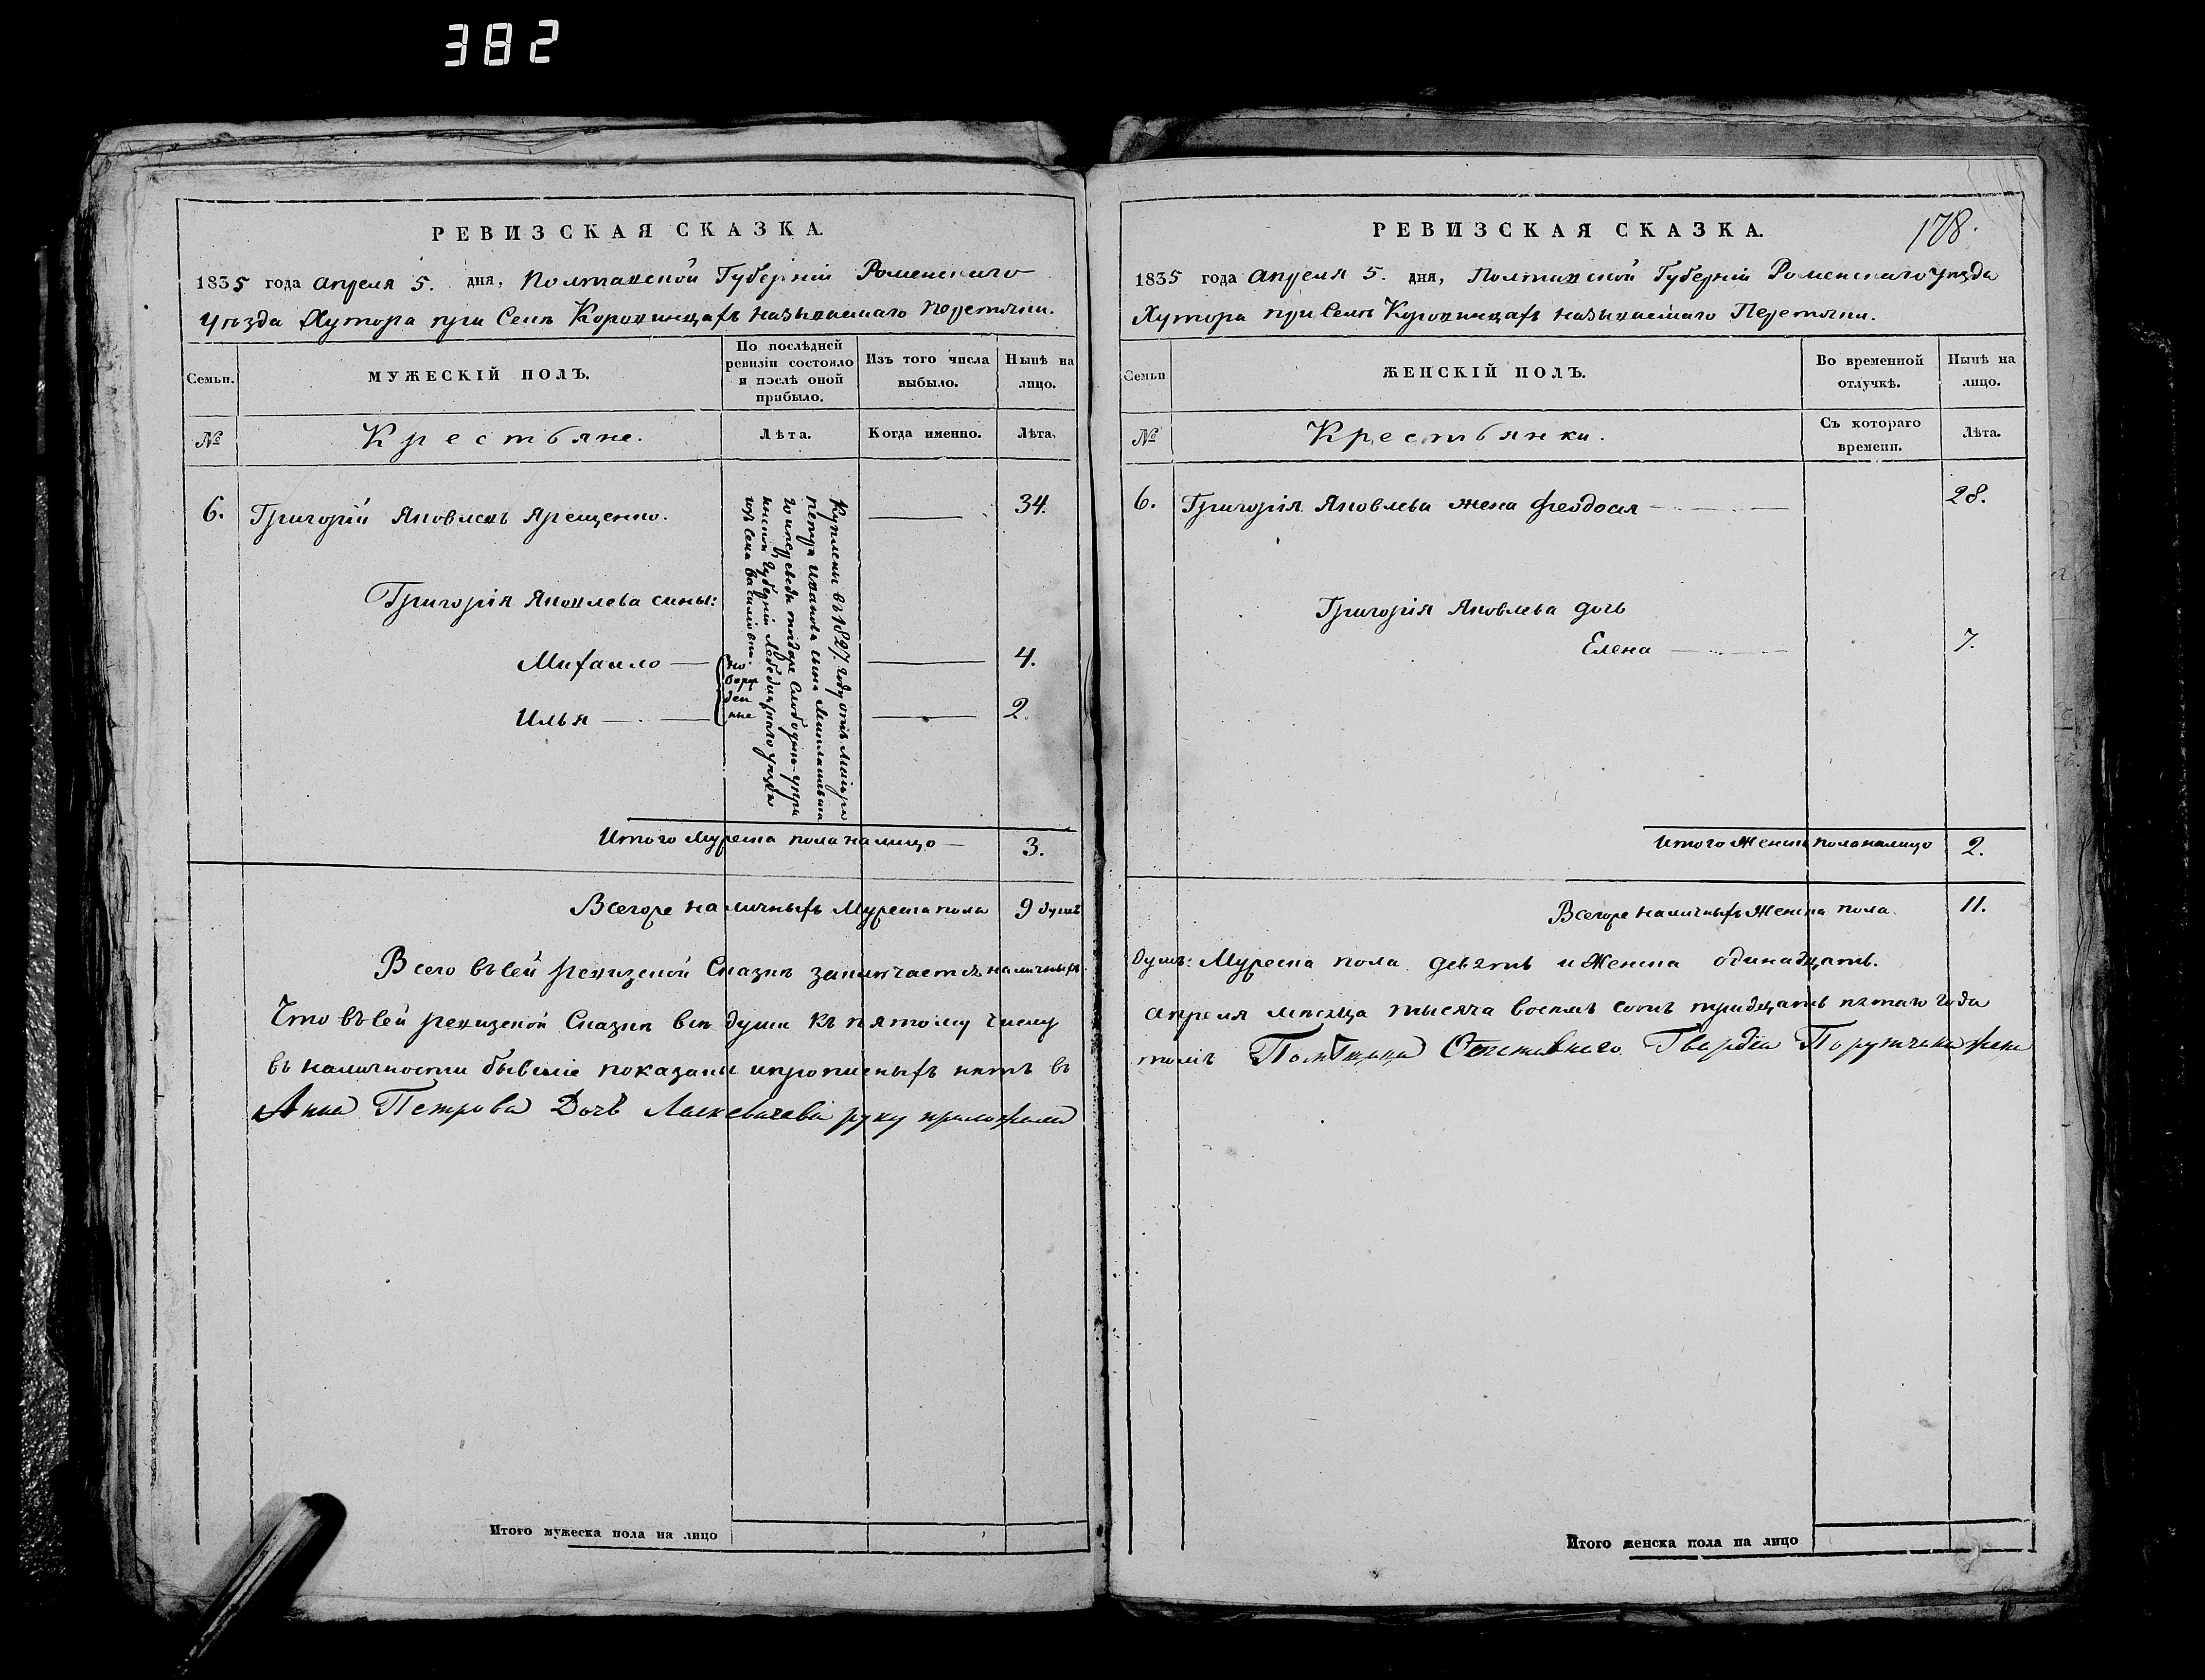 382
РЕВИЗСКАЯ СКАЗКА.
1835 года апреля 5. дня, Полтавской Губерніи Роменскаго
уѣзда Хутора при Селѣ Коровинцахъ называемаго Перетячки.
Семьи.
МУЖЕСКІЙ ПОЛЪ.
По послѣдней ревизіи состояло и послѣ оной прибыло.
Изъ того числа выбыло.
Нынѣ на лицо.
№
Крестьяне.
Лѣта.
Когда именно.
Лѣта.
6. Григорій Яковлевъ Ярещенко. 34.
Куплены въ 1827. году отъ Маіора
Петра Иванова сына
Слободско-Укра
инской Губерніи Лебединскаго уѣзда
изъ села
Григорія Яковлева сины:
Михайло 4.
Илья 2.
но
ворож
ден
ные
Итого Мужеска пола на лицо 3.
Всегоже наличныхъ Мужеска пола 9 душъ
Всего въ сей ревизской Сказкѣ заключается наличныхъ
Что въ сей ревизской Сказкѣ всѣ души къ пятому числу
въ наличности бывшіе показаны и прописныхъ нѣтъ въ
Анна Петрова Дочь руку приложила
Итого мужеска пола на лицо
РЕВИЗСКАЯ СКАЗКА.
178.
1835 года апреля 5. дня, Полтавской Губерніи Роменскаго уѣзда
Хутора при Селѣ Коровинцахъ называемаго Перетячки.
Семьи
ЖЕНСКІЙ ПОЛЪ.
Во временной отлучкѣ.
Нынѣ на лицо.
№
Крестьянки.
Съ котораго времени.
Лѣта.
6. Григорія Яковлева жена Феодосія 28.
Григорія Яковлева дочь
Елена 7.
Итого Женска пола на лицо 2.
Всегоже наличныхъ Женска пола. 11.
душъ: Мужеска пола девять и Женска одинадцать.
апреля мѣсяца тысяча восемь сотъ тридцать пятаго года
томъ Отставнаго Гвардіи Порутчика жена
Итого женска пола на лицо